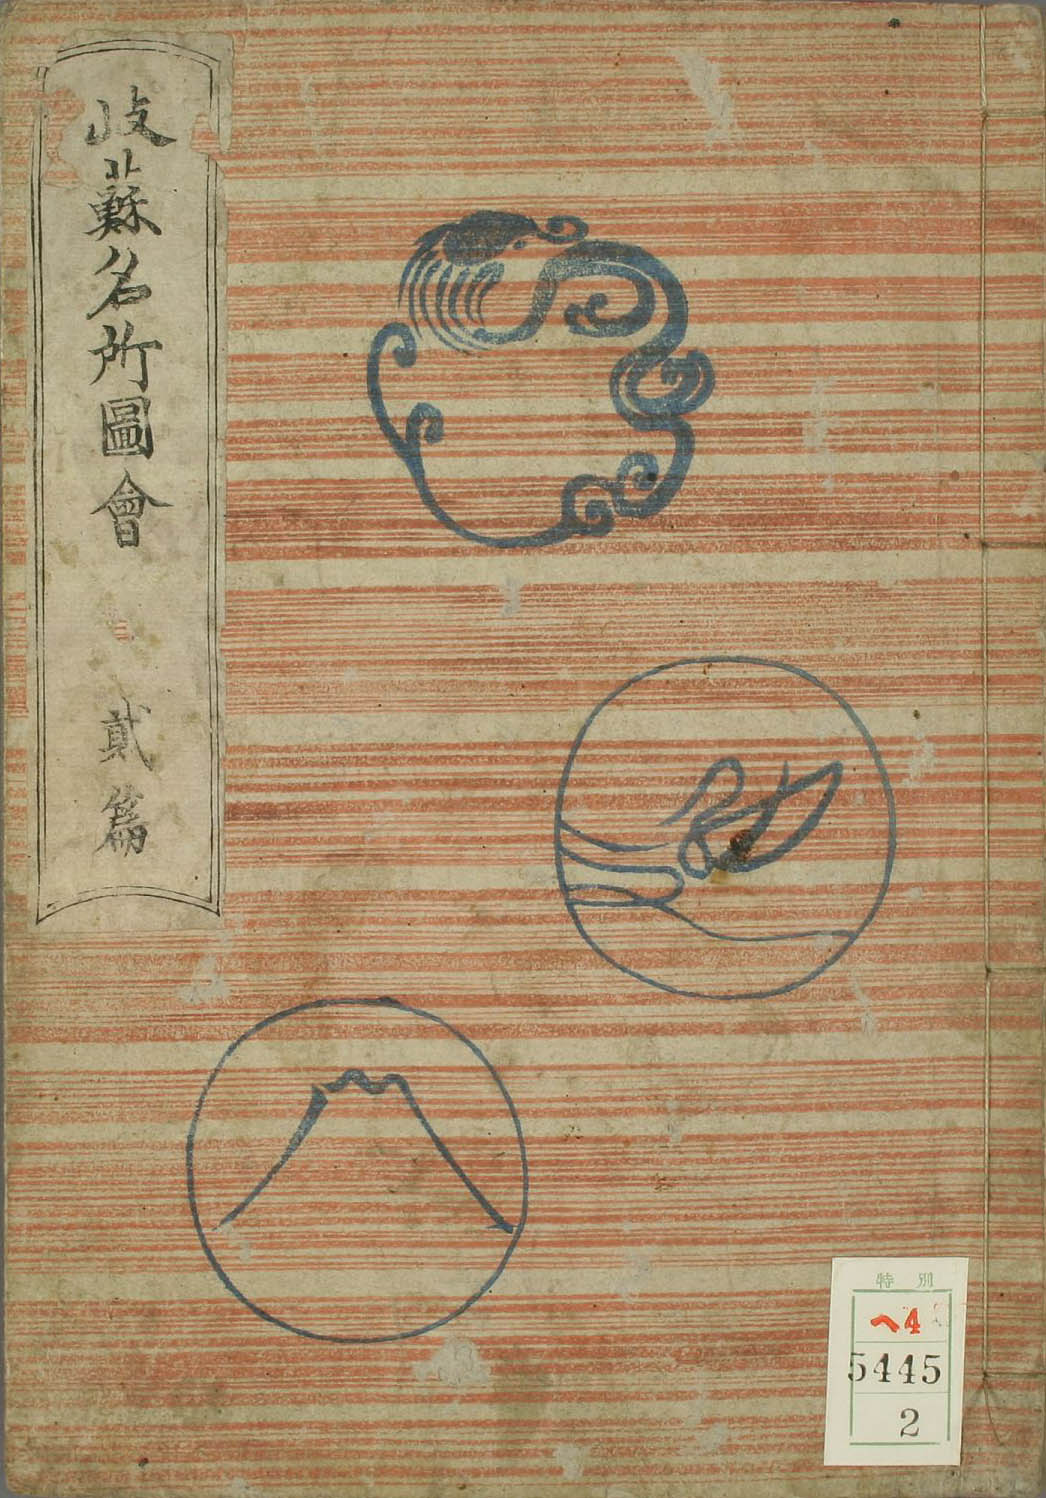 岐蘇名所圖會
貳篇
特別
ヘ4
5445
2